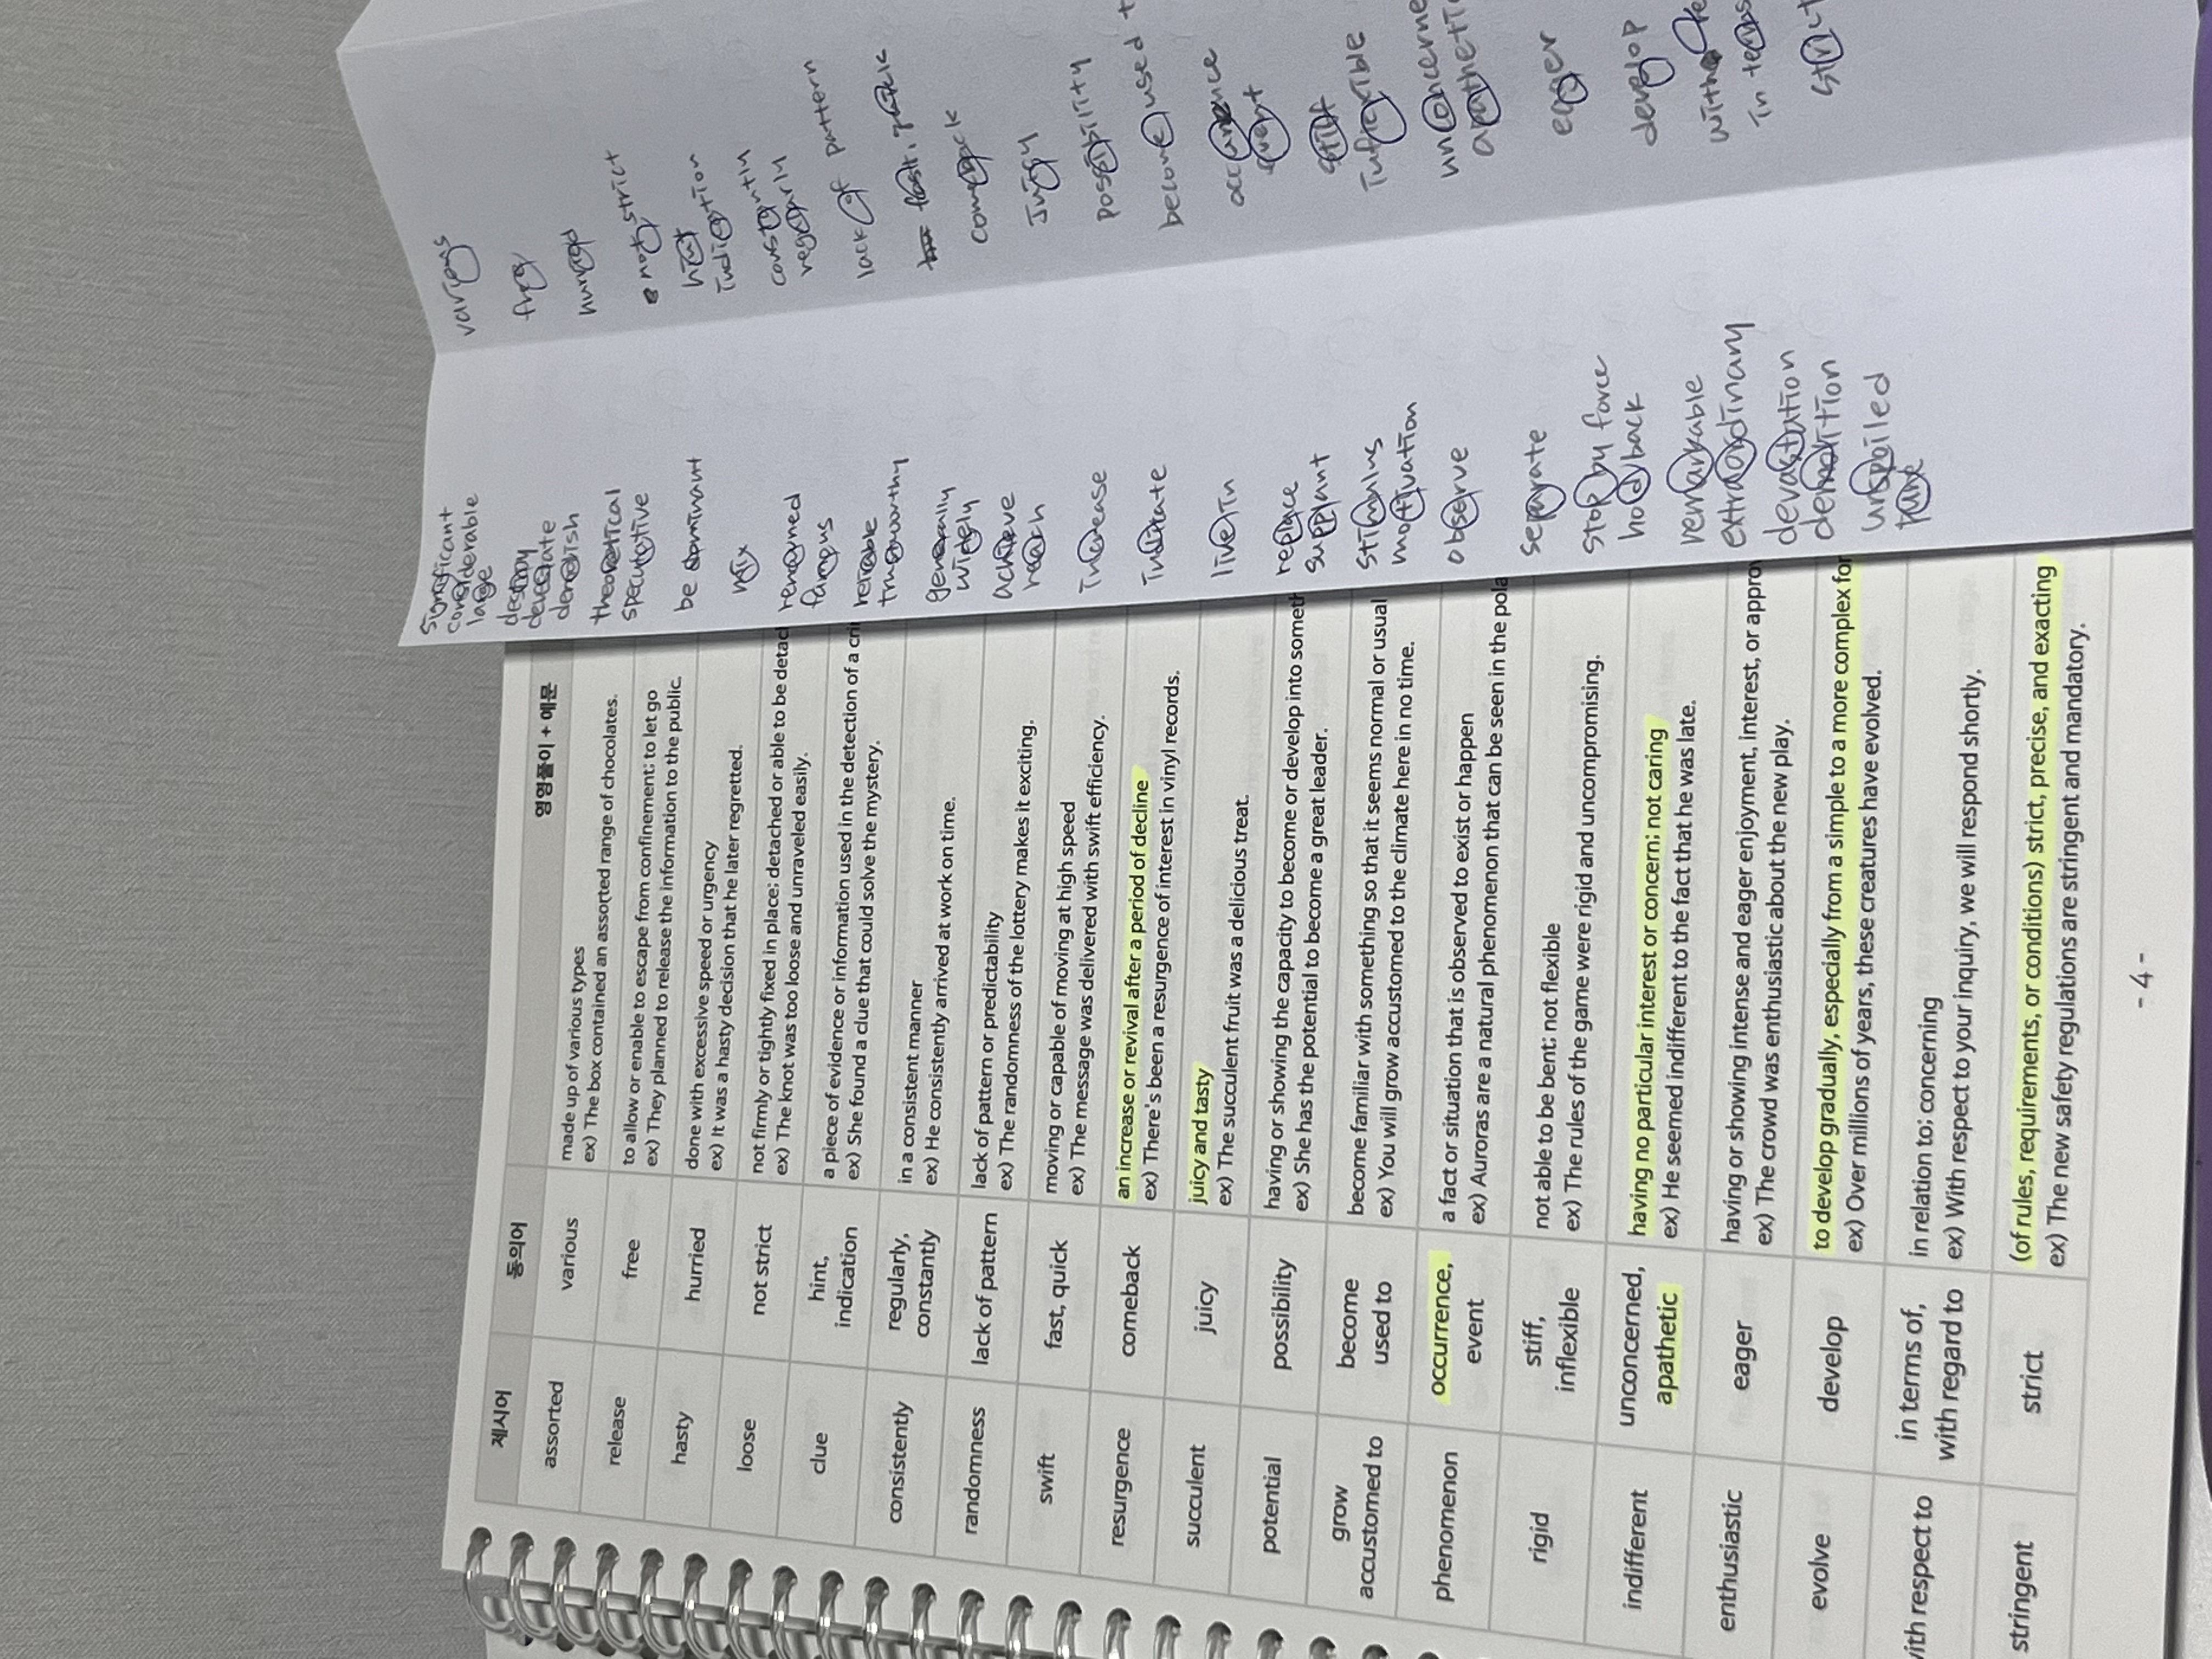 제시어
동의어
영영풀이 + 예문
assorted
various
made up of various types
ex) The box contained an assorted range of chocolates.
release
free
to allow or enable to escape from confinement; to let go
ex) They planned to release the information to the public.
hasty
hurried
done with excessive speed or urgency
ex) It was a hasty decision that he later regretted.
loose
not strict
not firmly or tightly fixed in place; detached or able to be detac
ex) The knot was too loose and unraveled easily.
clue
hint,
indication
a piece of evidence or information used in the detection of a cri
ex) She found a clue that could solve the mystery.
consistently
regularly,
constantly
in a consistent manner
ex) He consistently arrived at work on time.
randomness
lack of pattern
lack of pattern or predictability
ex) The randomness of the lottery makes it exciting.
swift
fast, quick
moving or capable of moving at high speed
ex) The message was delivered with swift efficiency.
resurgence
comeback
an increase or revival after a period of decline
ex) There's been a resurgence of interest in vinyl records.
succulent
juicy
juicy and tasty
ex) The succulent fruit was a delicious treat.
potential
possibility
having or showing the capacity to become or develop into someth
ex) She has the potential to become a great leader.
grow
accustomed to
become
used to
become familiar with something so that it seems normal or usual
ex) You will grow accustomed to the climate here in no time.
phenomenon
occurrence,
event
a fact or situation that is observed to exist or happen
ex) Auroras are a natural phenomenon that can be seen in the pola
rigid
stiff,
inflexible
not able to be bent; not flexible
ex) The rules of the game were rigid and uncompromising.
indifferent
unconcerned,
apathetic
having no particular interest or concern; not caring
ex) He seemed indifferent to the fact that he was late.
enthusiastic
eager
having or showing intense and eager enjoyment, interest, or approv
ex) The crowd was enthusiastic about the new play.
evolve
develop
to develop gradually, especially from a simple to a more complex for
ex) Over millions of years, these creatures have evolved.
with respect to
in terms of,
with regard to
in relation to; concerning
ex) With respect to your inquiry, we will respond shortly.
stringent
strict
(of rules, requirements, or conditions) strict, precise, and exacting
ex) The new safety regulations are stringent and mandatory.
- 4 -
significant
considerable
large
destroy
devastate
demolish
theoretical
speculative
be dominant
mix
renowned
famous
reliable
trustworthy
generally
widely
achieve
reach
increase
indicate
live in
replace
supplant
stimulus
motivation
observe
separate
stop by force
hold back
remarkable
extraordinary
devastation
demolition
unspoiled
pure
various
free
hurried
not strict
hint
indication
constantly
regularly
lack of pattern
fast, quick
comeback
juicy
possibility
become used t
occurence
event
stiff
inflexible
unconcerne
apathetic
eager
develop
with
in terms
strict